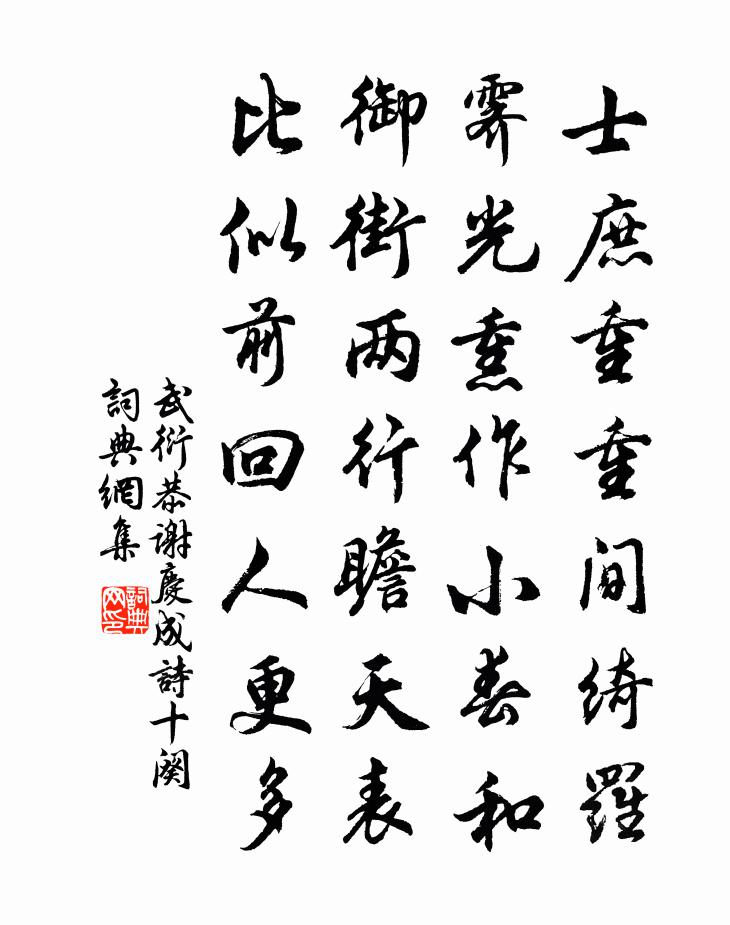 士庶重重间綺羅
霽光熏作小春和
御街两行瞻天表
比似前回人更多
武衍恭谢慶成詩十闋
詞典網集
詞典网印